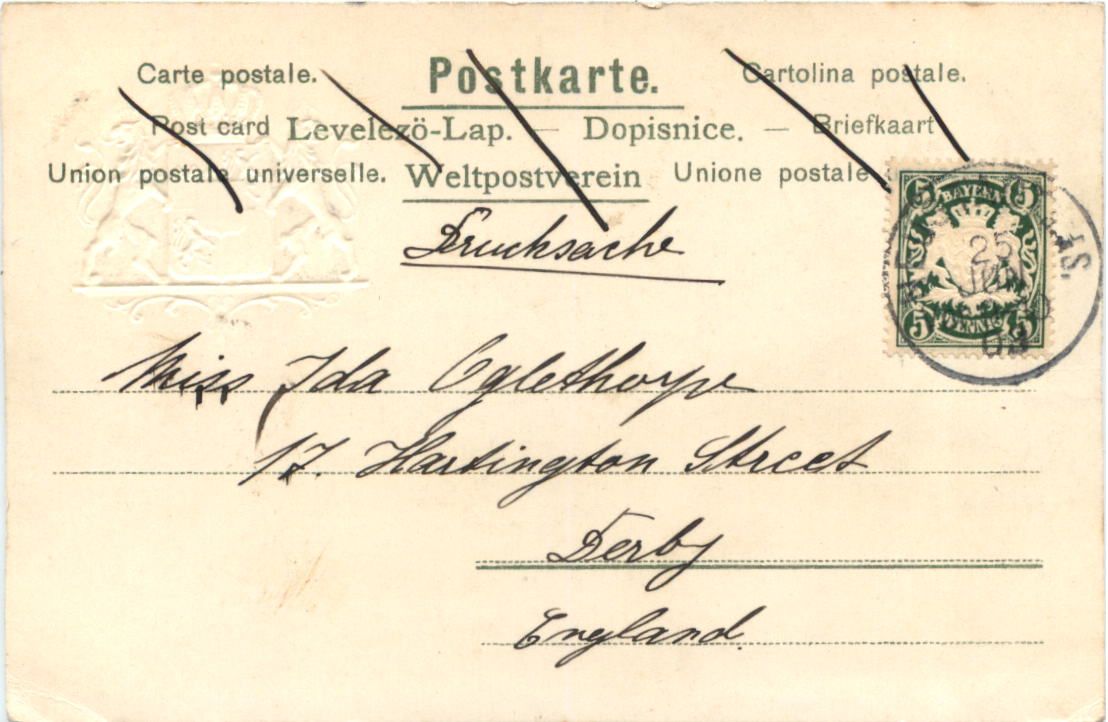 Carte postale. Postkarte. Cartolina postale.
Post card Levelezö-Lap. — Dopisnice. — Briefkaart
Union postale universelle. Weltpostverein Unione postale
Drucksache
5 BAYERN 5
5 PFENNIG 5
25
Miss Ida Oglethorpe
17. Hartington Street
Derby
England.